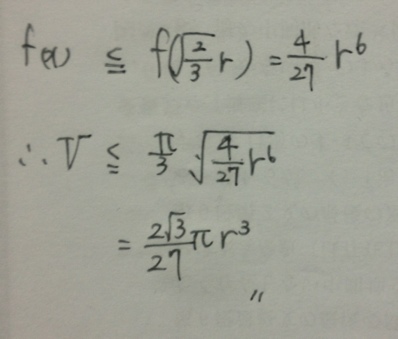 f(x) ≦ f(√2/3 r) = 4/27 r⁶
∴ V ≦ π/3 √(4/27 r⁶)
= 2√3/27 πr³
〃